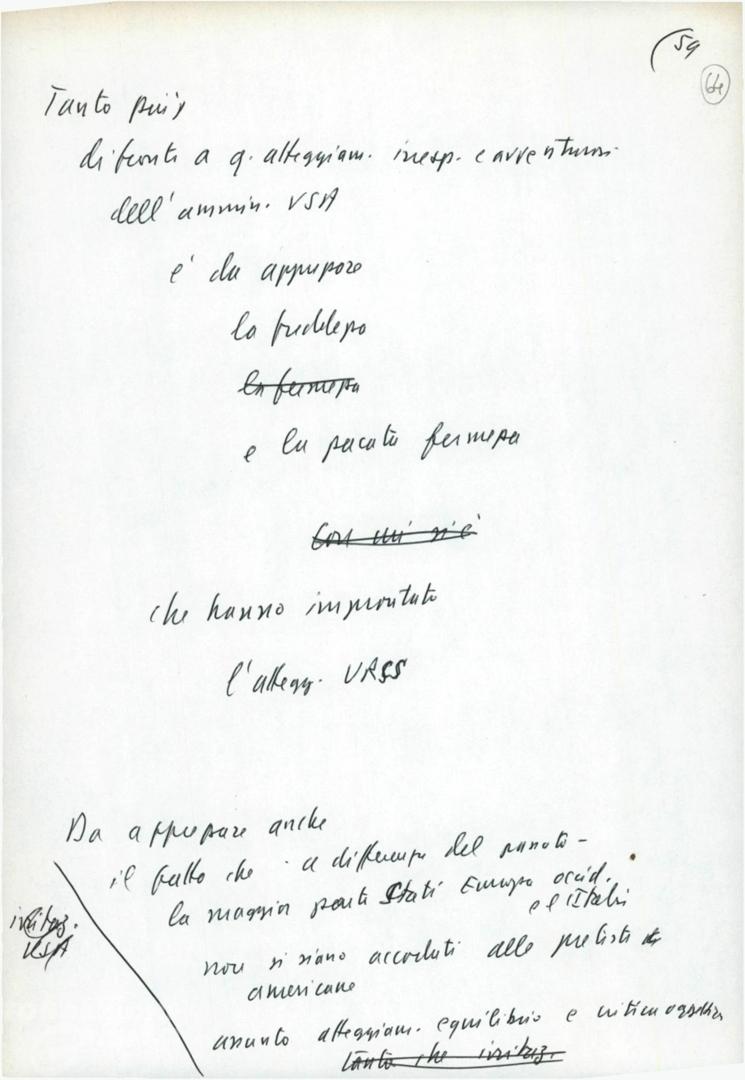 59
64
Tanto più
di fronte a q. atteggiam. inesp. e avventurosi
dell'ammin. USA
e' da apprezzare
la freddezza
la fermezza
e la pacata fermezza
che hanno improntato
l'attegg. URSS
Da apprezzare anche
il fatto che a differenza del passato -
la maggior parte Stati Europa occid.
e l'Italia
non si siano accodati alle pretese
americane
irritaz.
USA
assunto atteggiam. equilibrio e critica
tanto che irritaz.